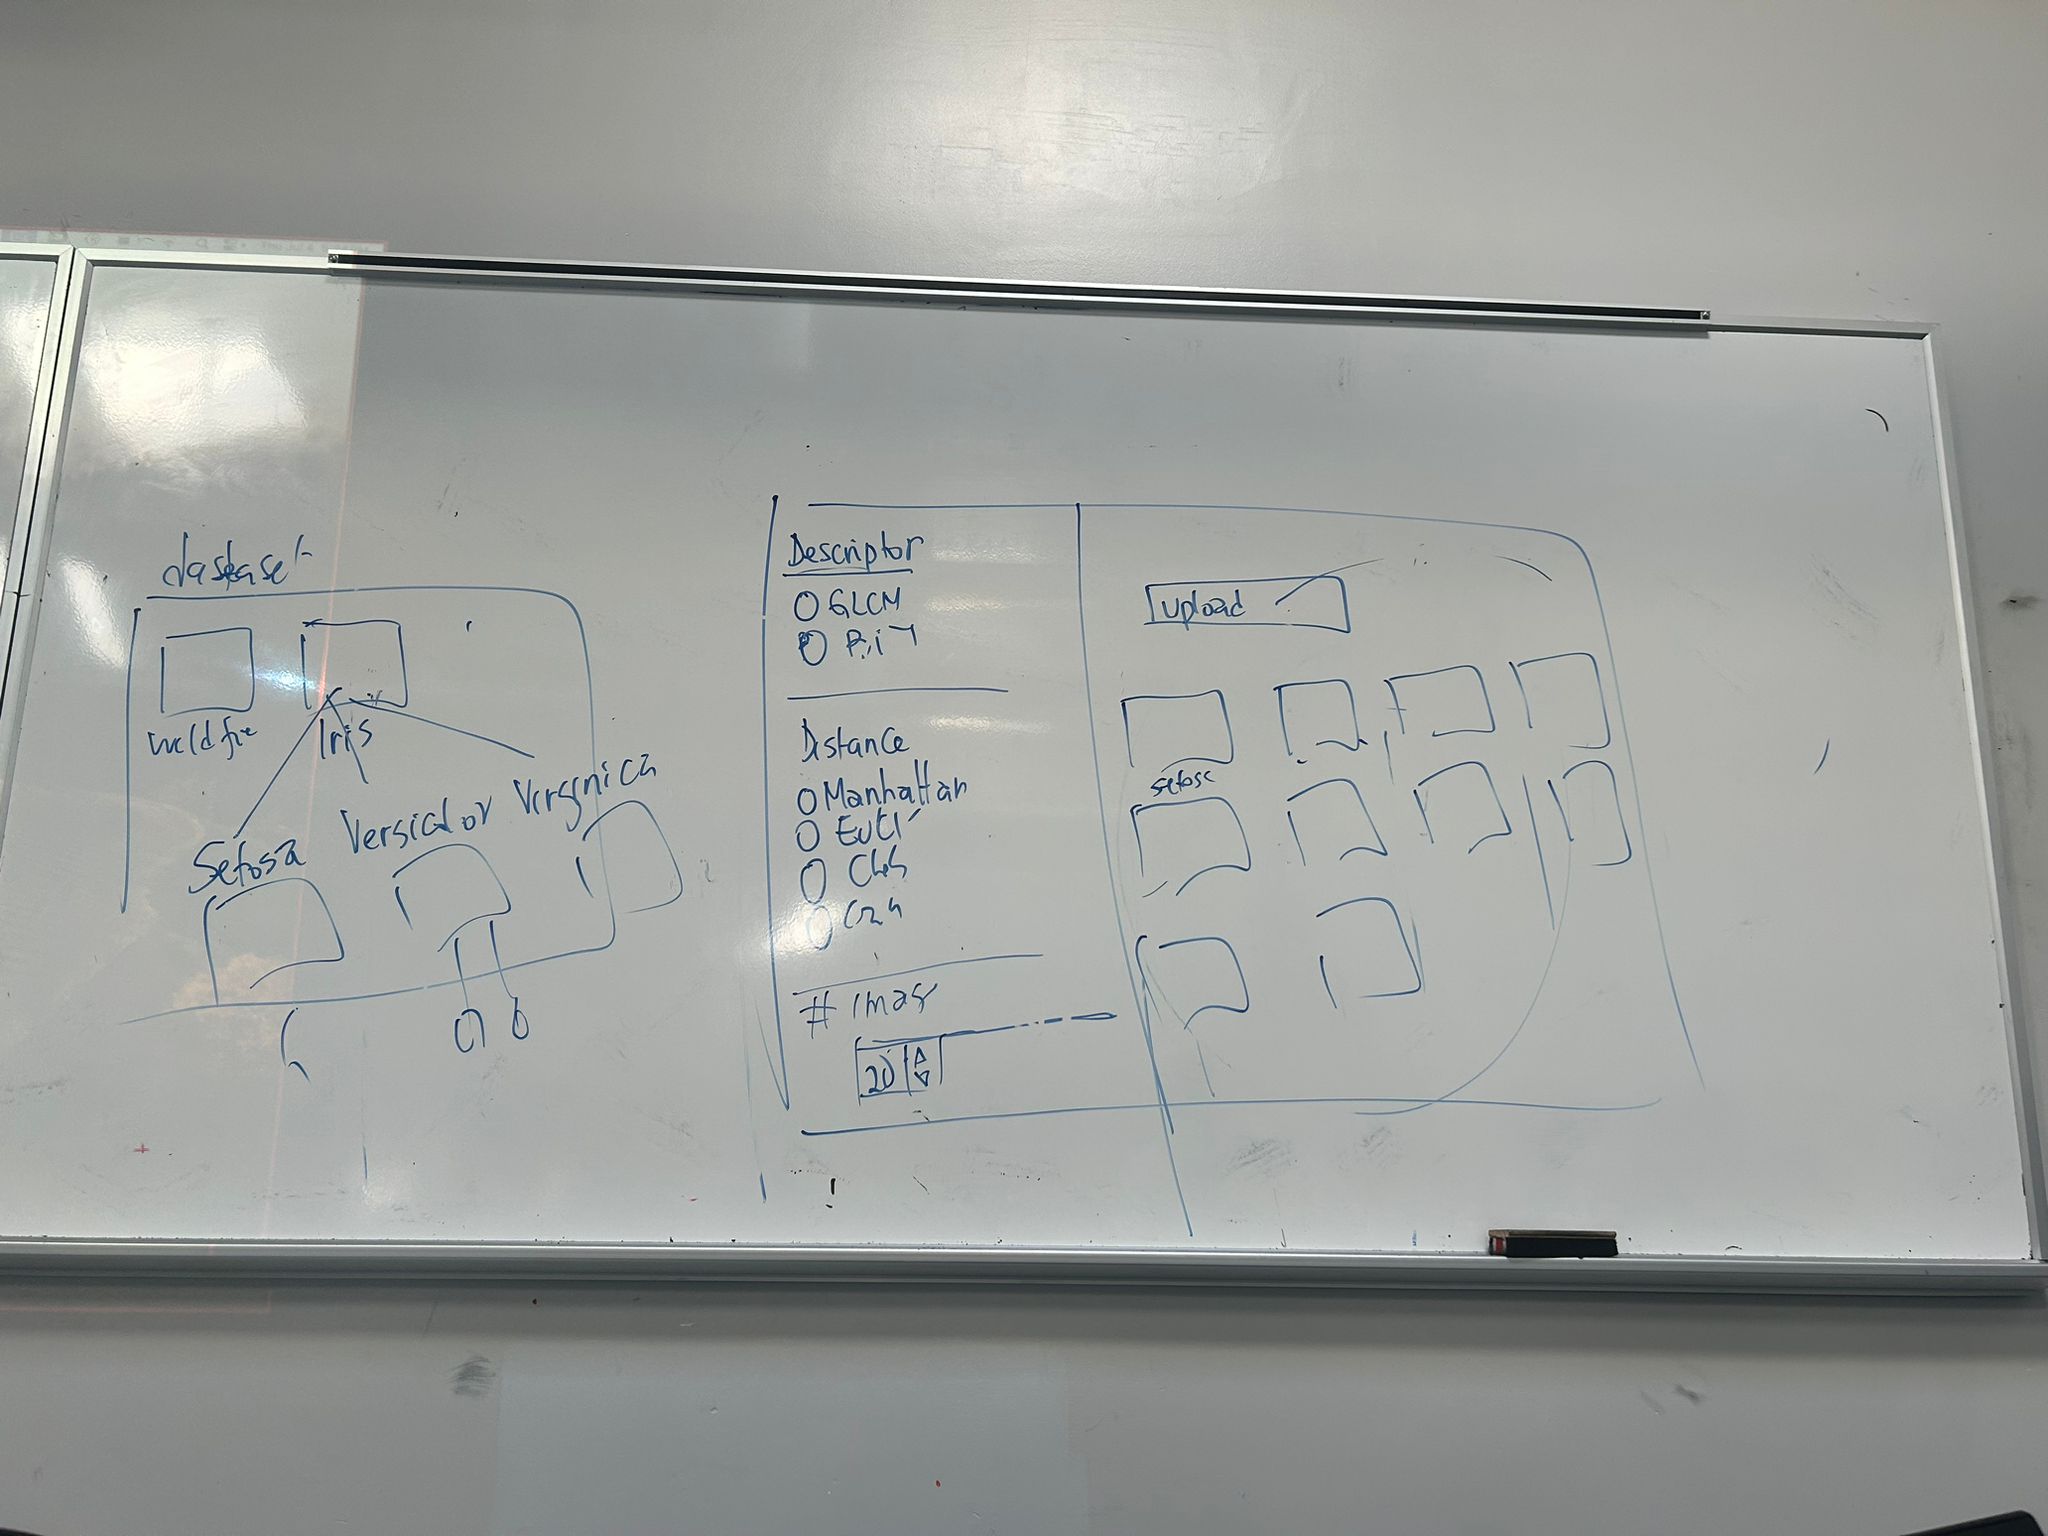 dataset
Iris
Setosa
Versicolor
Virginica
Descriptor
GLCM
BiT
Distance
Manhattan
Eucl
# imag
20
upload
setosa